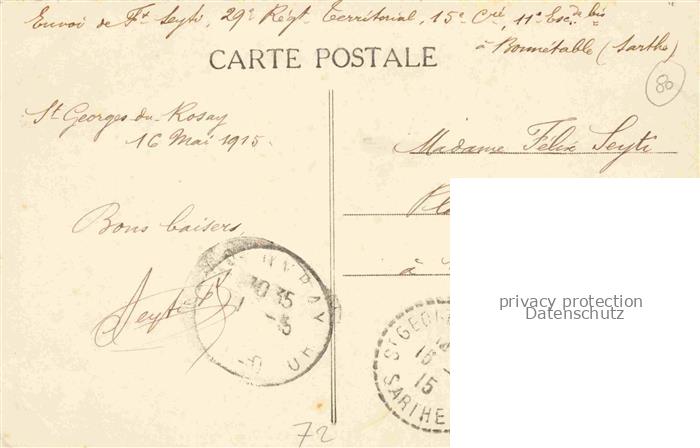 Envoi de Ft Seyti, 29e Régt Territorial, 15e Cie, 11e Esc. de bis
à Bonnétable (Sarthe)
CARTE POSTALE
80
St Georges du Rosay
16 Mai 1915.
Madame Félix Seyti
Bons baisers,
à
Seyti Ft
10 35
ST GEORGES
16
15
SARTHE
72
privacy protection
Datenschutz